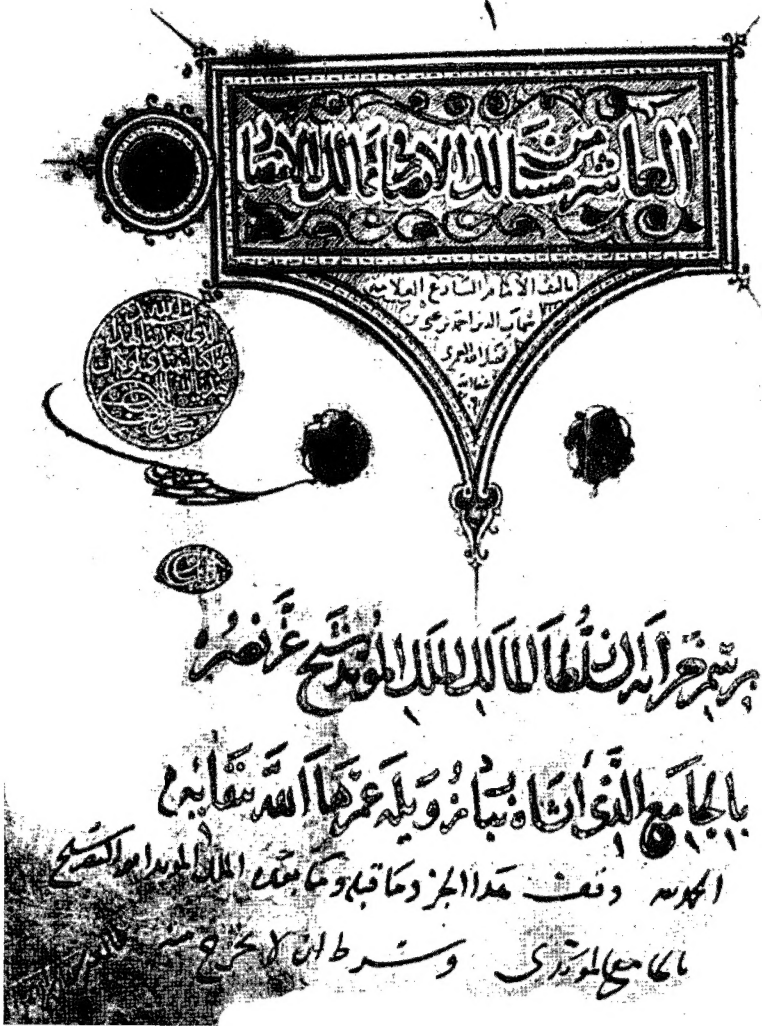 ١
العاشر من مسالك الأبصار في ممالك الأمصار
تاليف الامام البارع العلامه
شهاب الدين احمد بن يحيى بن
فضل الله العمري
الحمد لله
الذي هدانا لهذا
وما كنا لنهتدي لولا ان
هدانا الله
برسم خزانة السلطان المالك الملك المؤيد شيخ عز نصره
بالجامع الذي أنشاه بباب زويله عمرها الله ببقائه
الحمد لله وقف هذا الجزء وما قبله وما بعده الملك المؤيد ابو النصر شيخ
بالجامع المؤيدي وشرط ان لا يخرج منه